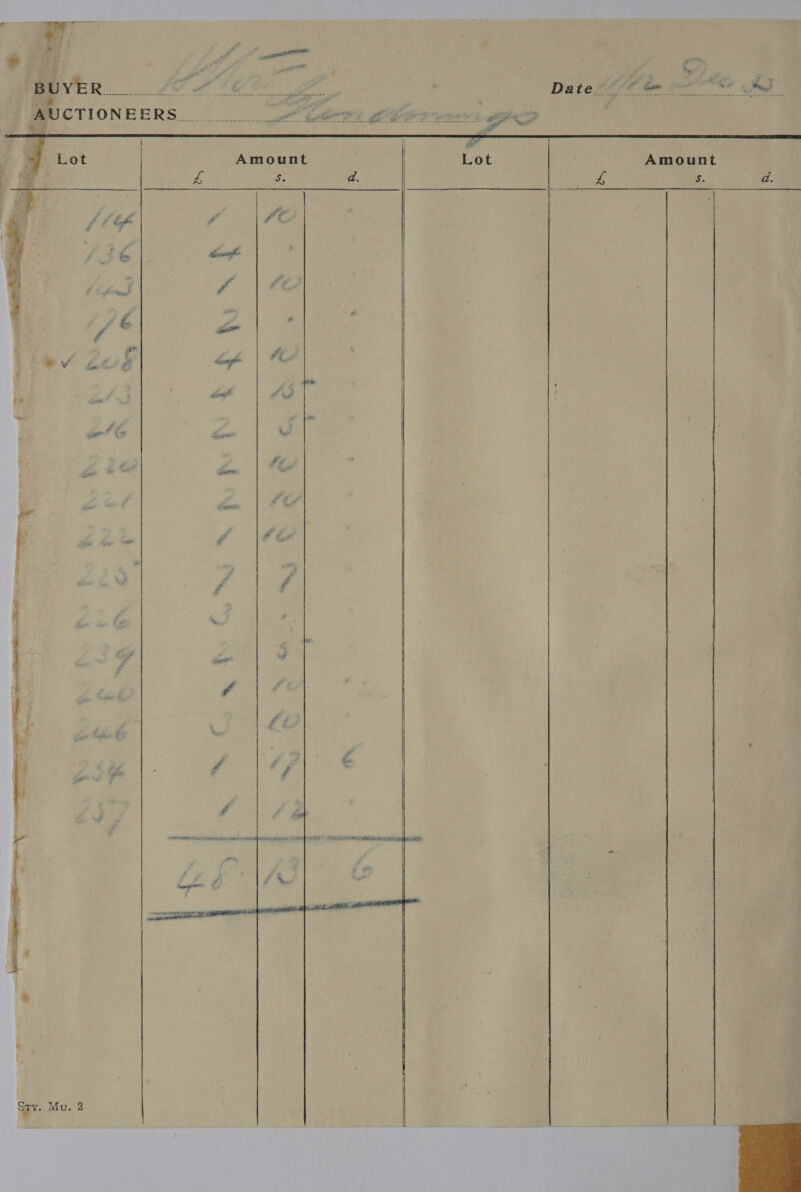 BUYER
Date Dec
AUCTIONEERS Glendining
Lot Amount Lot Amount
£ s. d. £ s. d.
114 1 10
136 4 .
143 1 10
176 2 . .
✓ 208 4 10
213 4 15
216 2 5
220 2 10
221 2 10
222 1 10
225 7 7
226 3 .
239 2 5
240 1 10
246 3 10
254 1 17 6
257 1 12
48 13 6
Sty. Mu. 2